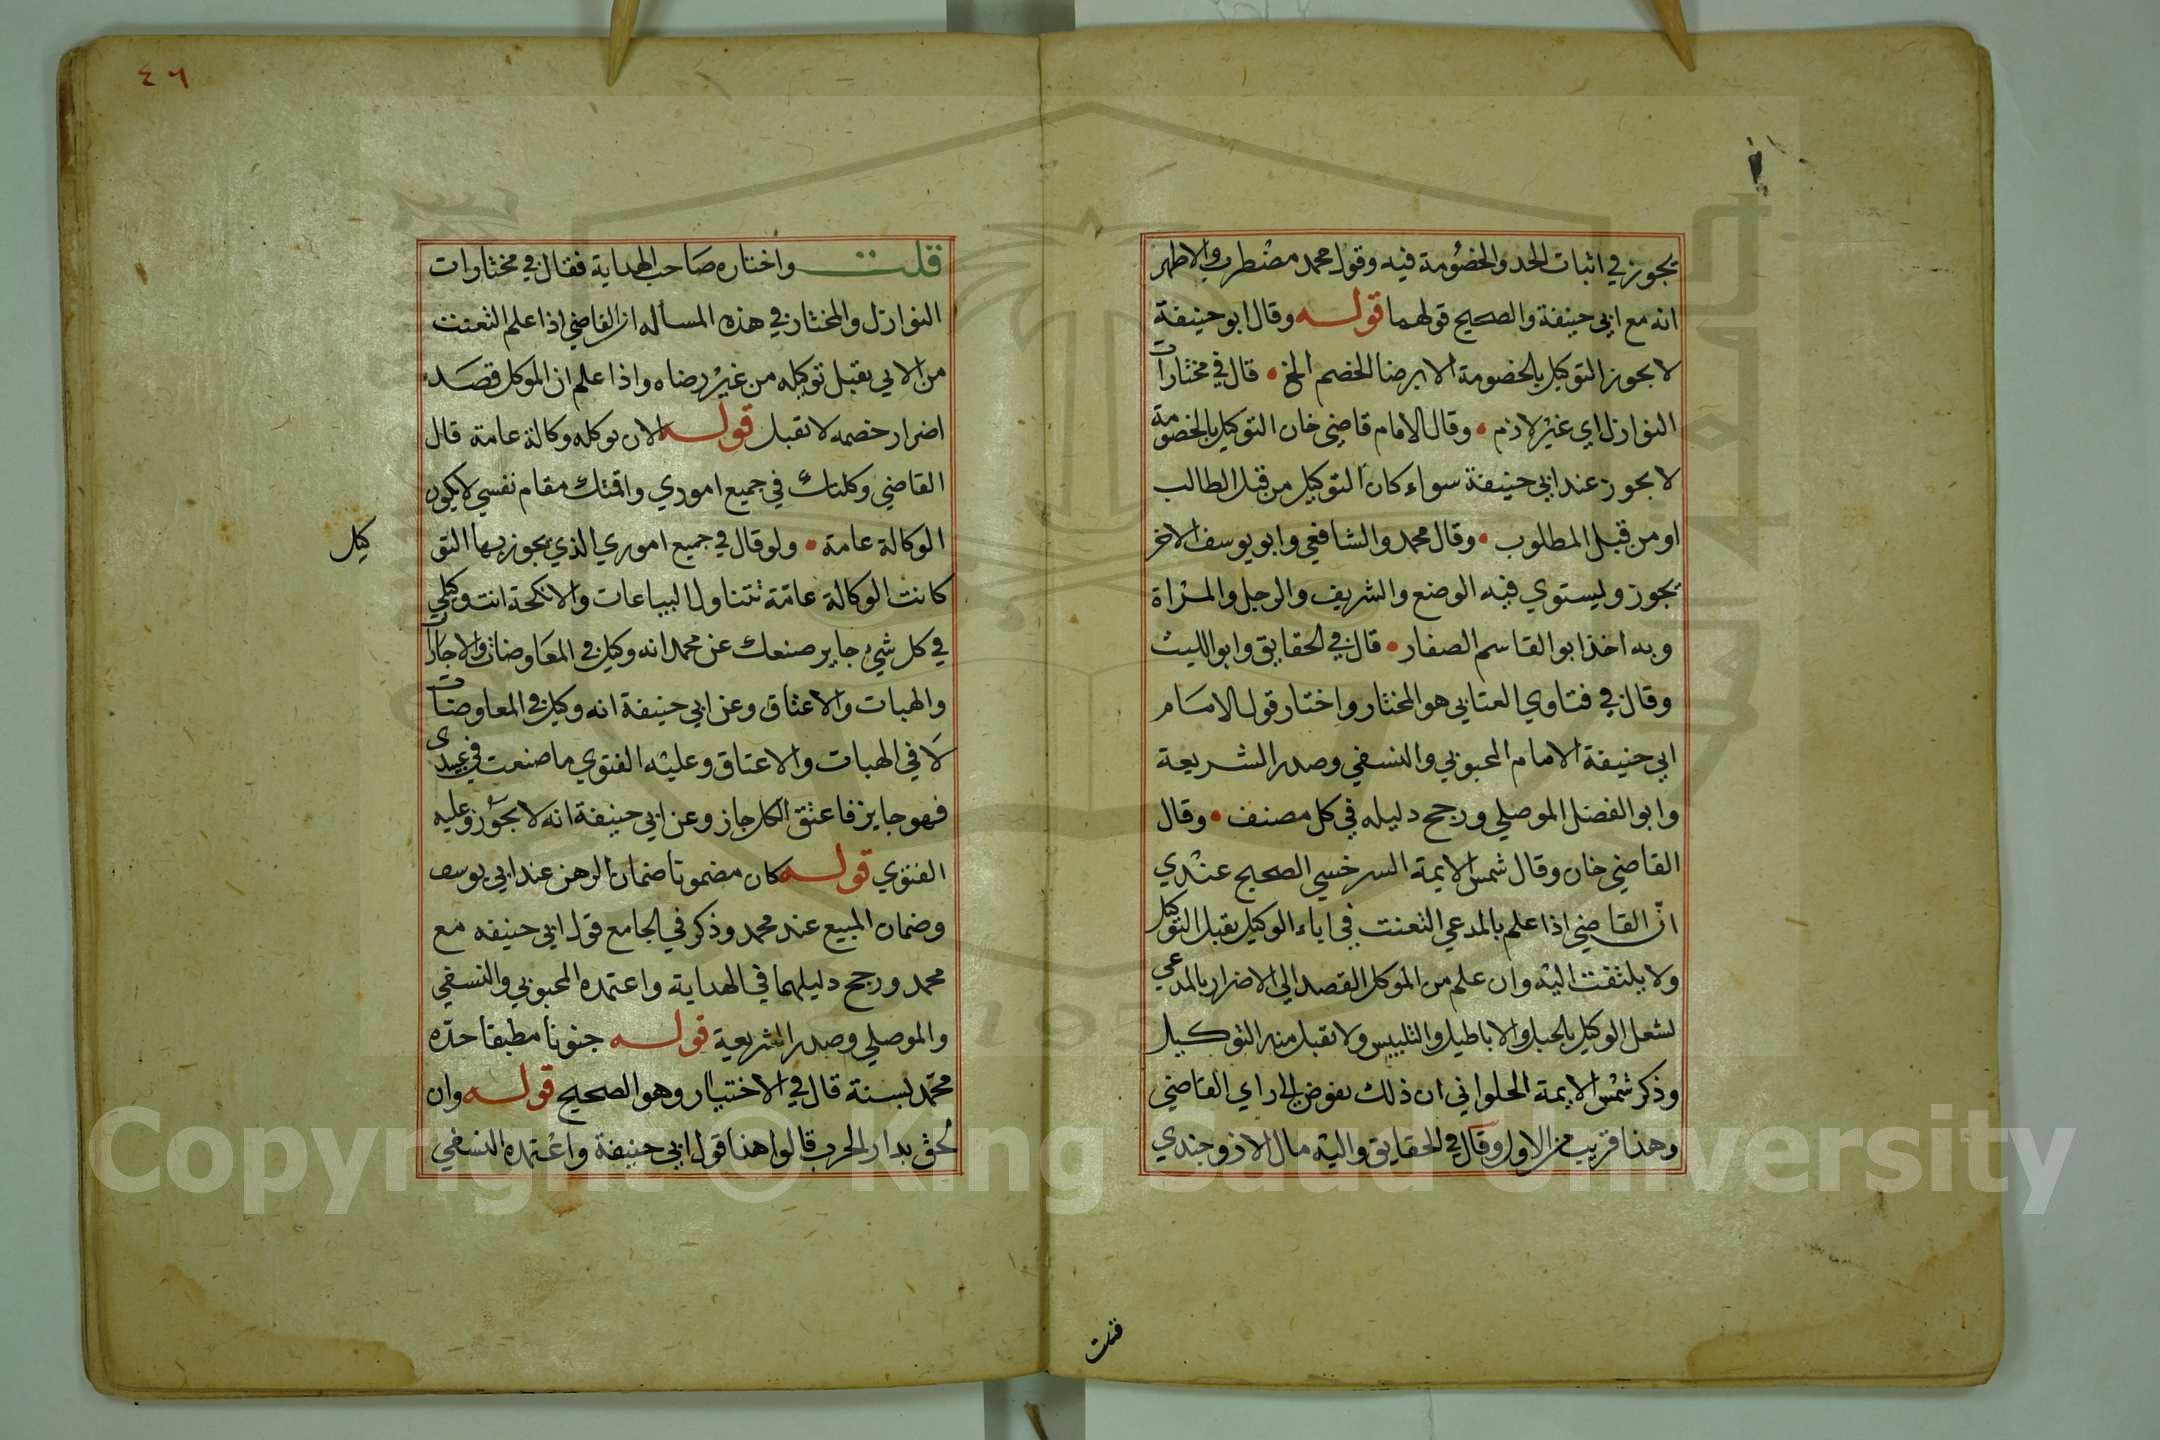 يجوز في اثبات الحد والخصومة فيه وقول محمد مضطرب والاظهر
انه مع ابي حنيفة والصحيح قولهما قوله وقال ابو حنيفة
لا يجوز التوكيل بالخصومة الا برضا الخصم الخ • قال في مختارات
النوازل اي غير لازم • وقال الامام قاضي خان التوكيل بالخصومة
لا يجوز عند ابي حنيفة سواء كان التوكيل من قبل الطالب
او من قبل المطلوب • وقال محمد والشافعي وابو يوسف الاخر
يجوز وليستوي فيه الوضع والشريف والرجل والمراة
وبه اخذ ابو القاسم الصفار • قال في الحقايق وابو الليث
وقال في فتاوي العتابي هو المختار واختار قول الامام
ابي حنيفة الامام المحبوبي والنسفي وصدر الشريعة
وابو الفضل الموصلي ورجح دليله في كل مصنف • وقال
القاضي خان وقال شمس الايمة السرخسي الصحيح عندي
انّ القاضي اذا علم بالمدعي التعنت في اباء الوكيل يقبل التوكيل
ولا يلتفت اليه وان علم من الموكل القصد الي الاضرار بالمدعي
لشعل الوكيل بالحيل والاباطيل والتلبيس ولا تقبل منه التوكيل
وذكر شمس الايمة الحلواني ان ذلك يفوض الى راي القاضي
وهذا قريب من الاول وقال في الحقايق واليه مال الاذوجندي
قلت
٤٦
قلت واختاره صاحب الهداية فقال في مختاوات
النوازل والمختار في هذه المساله ان القاضي اذا علم التعنت
من الابي يقبل توكيله من غير رضاه واذا علم ان الموكل قصد
اضرار خصمه لا تقبل قوله لان يوكله وكالة عامة قال
القاضي وكلتك في جميع اموري واقمتك مقام نفسي لا يكون
الوكالة عامة • ولو قال في جميع اموري الذي يجوز بها التو
كيل
كانت الوكالة عامّة تتناول البياعات والانكحة انت وكيلي
في كل شيء جايز صنعك عن محمد انه وكيل في المعاوضات والاجارات
والهبات والاعتاق وعن ابي حنيفة انه وكيل في المعاوضات
لا في الهبات والاعتاق وعليه الفتوي ما صنعت في عبيدى
فهو جايز فاعتق الكل جاز وعن ابي حنيفة انه لا يجوز وعليه
الفتوي قوله كان مضمونا ضمان الرهن عند ابي يوسف
وضمان المبيع عند محمد وذكر في الجامع قول ابي حنيفه مع
محمد ورجح دليلهما في الهداية واعتمده المحبوبي والنسفي
والموصلي وصدر الشريعية قوله جنونا مطبقا حدّه
محمّد بسنة قال في الاختيار وهو الصحيح قوله وان
لحق بدار الحرب قالوا هذا قول ابي حنيفة واعتمده النسفي
Copyright © King Saud University